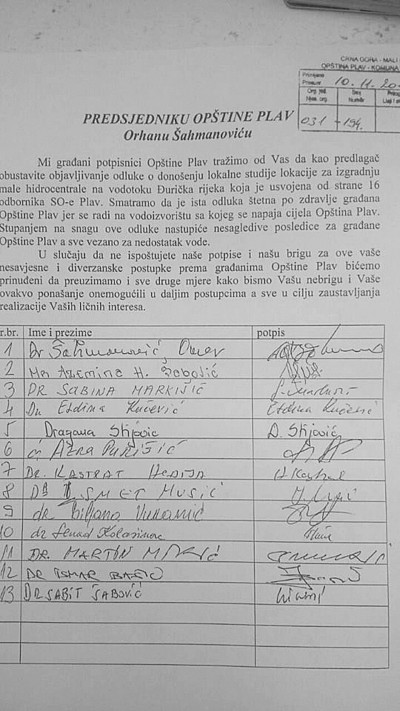 CRNA GORA - MALI
OPŠTINA PLAV - KOMUNA
10. 11. 20
031 - 194.
PREDSJEDNIKU OPŠTINE PLAV
Orhanu Šahmanoviću
Mi građani potpisnici Opštine Plav tražimo od Vas da kao predlagač
obustavite objavljivanje odluke o donošenju lokalne studije lokacije za izgradnju
male hidrocentrale na vodotoku Đurička rijeka koja je usvojena od strane 16
odbornika SO-e Plav. Smatramo da je ista odluka štetna po zdravlje građana
Opštine Plav jer se radi na vodoizvorištu sa kojeg se napaja cijela Opština Plav.
Stupanjem na snagu ove odluke nastupiće nesagledive posledice za građane
Opštine Plav a sve vezano za nedostatak vode.
U slučaju da ne ispoštujete naše potpise i našu brigu za ove vaše
nesavjesne i diverzanske postupke prema građanima Opštine Plav bićemo
prinuđeni da preuzimamo i sve druge mjere kako bismo Vašu nebrigu i Vaše
ovakvo ponašanje onemogućili u daljim postupcima a sve u cilju zaustavljanja
realizacije Vaših ličnih interesa.
r.br. Ime i prezime potpis
1 Dr Šahmanović, Omer
2 Azemina H.
3 DR SABINA MARKIŠIĆ
4 Dr Eldina Kučević Eldina Kučević
5 Dragana Stijović D. Stijović
6 AZRA PURIŠIĆ
7 DR. KASTRAT
8 DR ISMET MUSIĆ
9 dr. Biljana
10 dr Senad Kolašinac
11 DR. MARTIN
12 DR ISMAR
13 DR SABIT ŠABOVIĆ